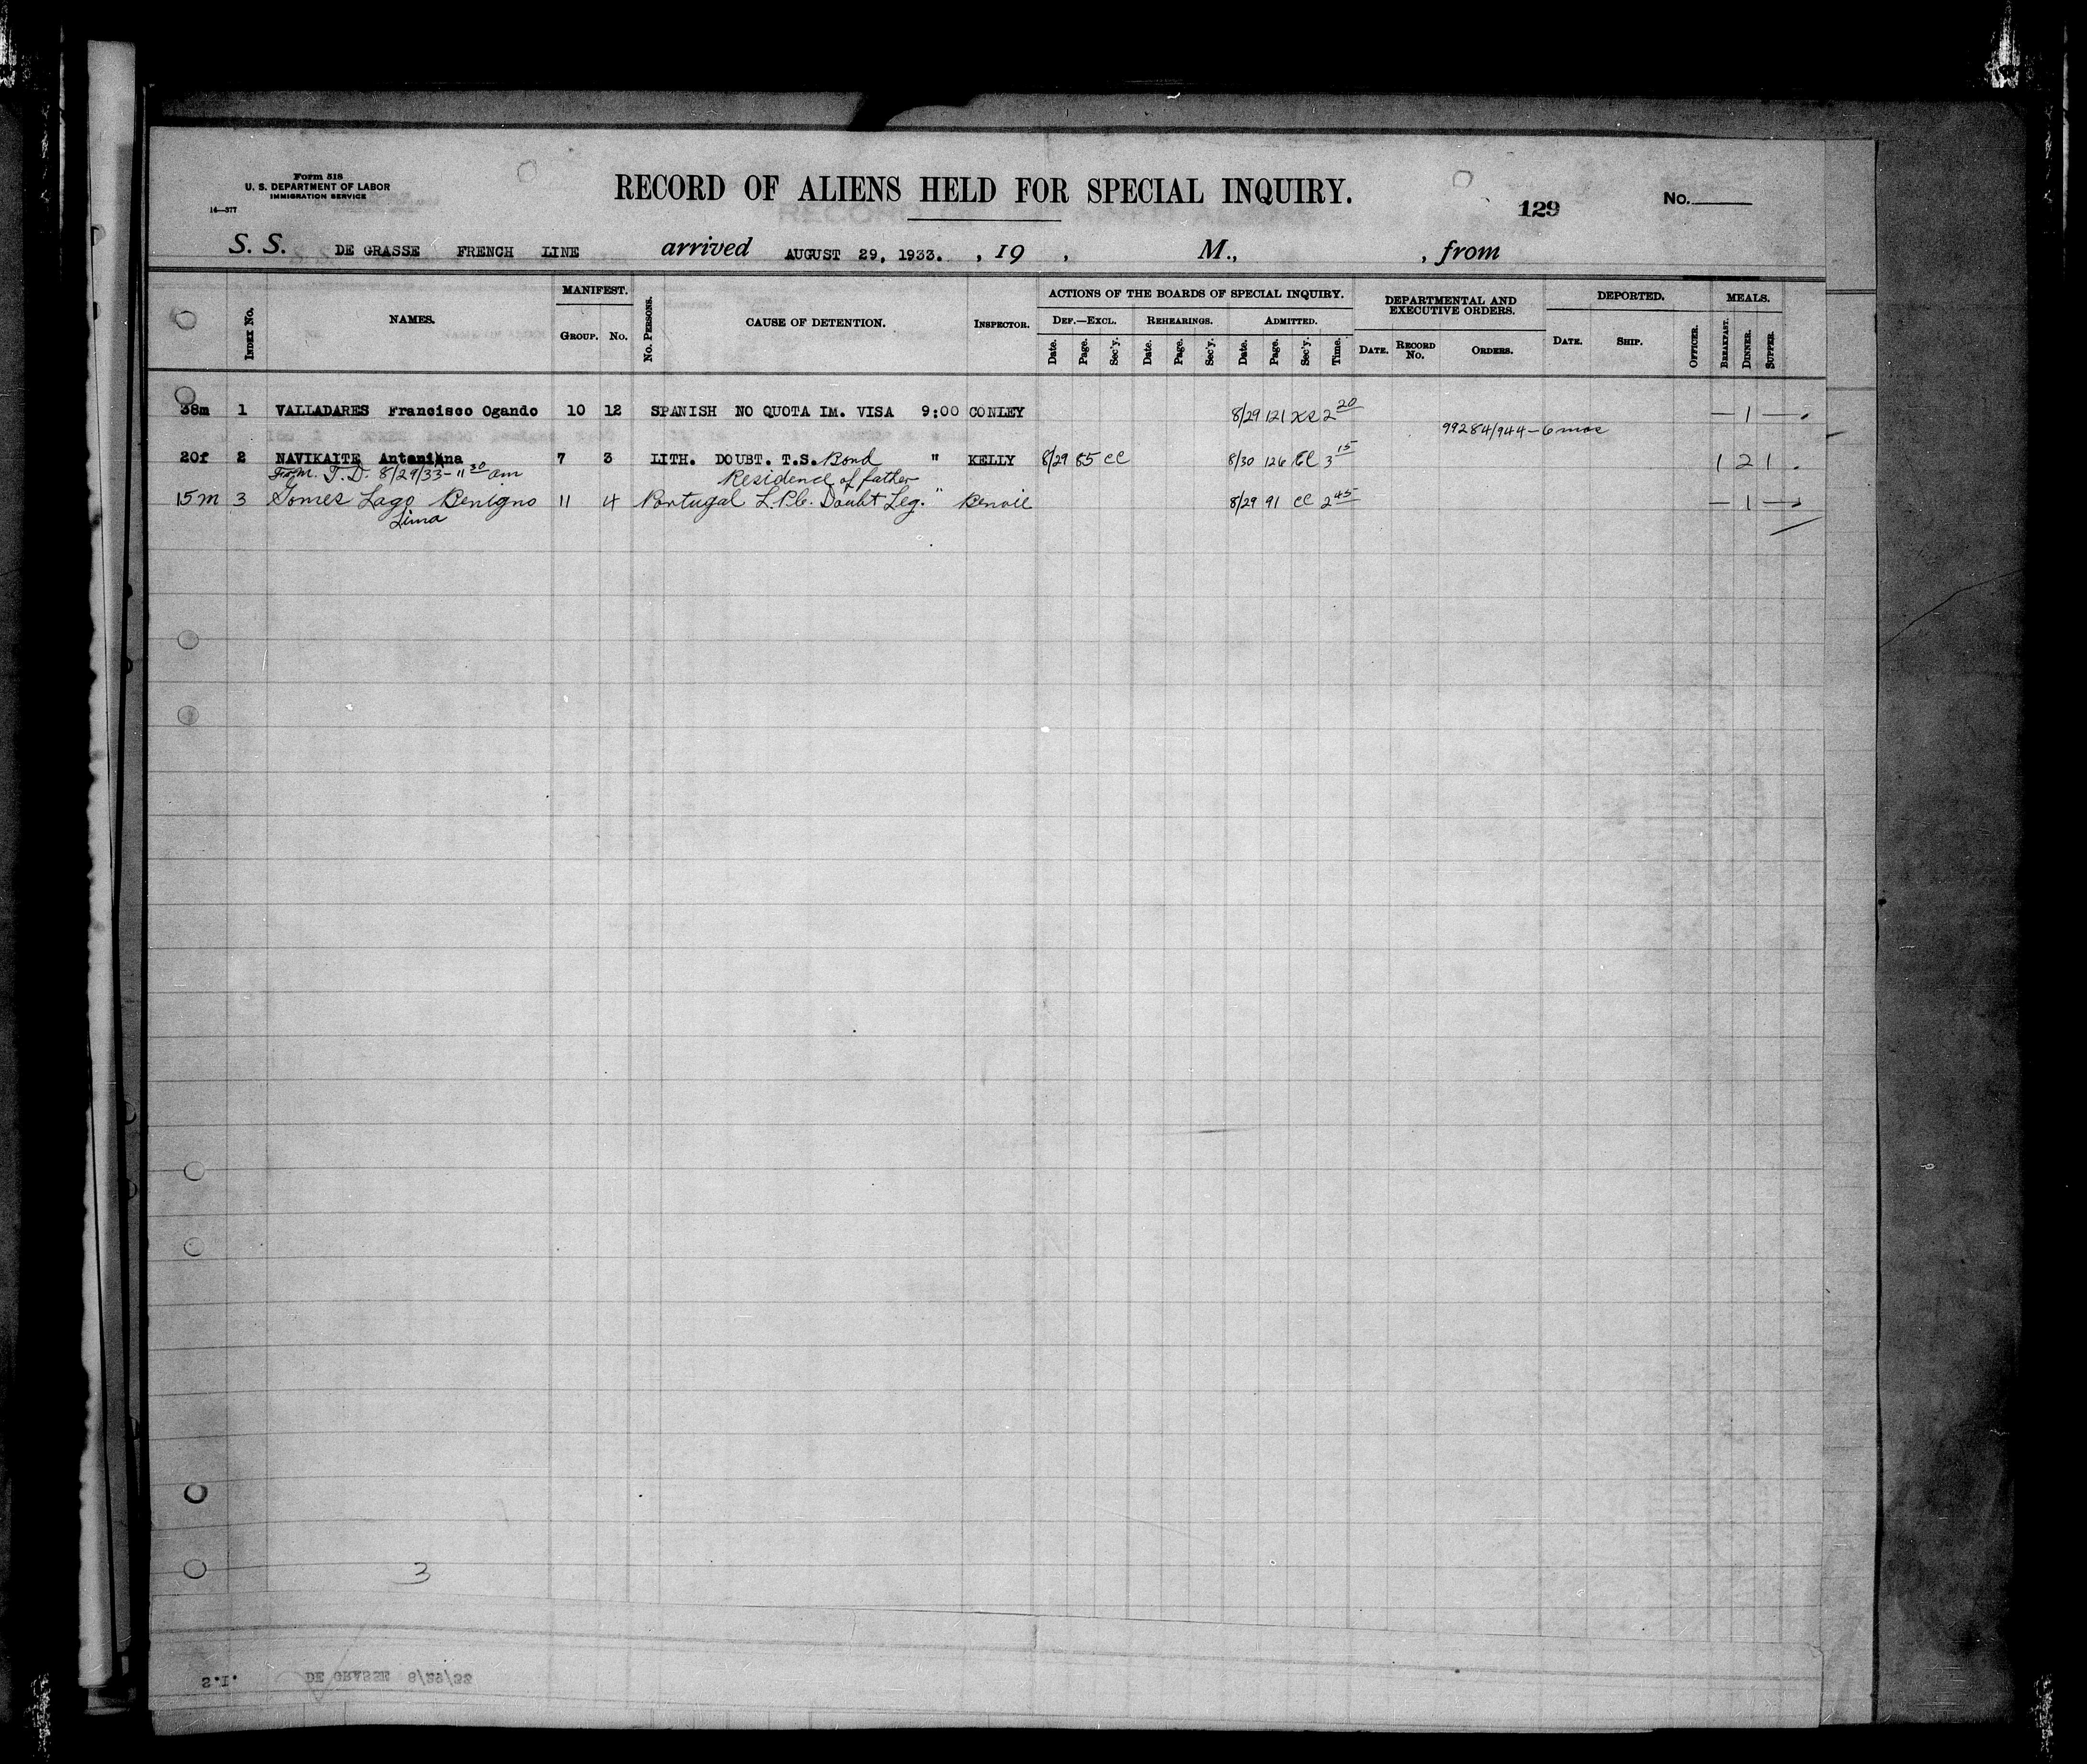 Form 518
U. S. DEPARTMENT OF LABOR
IMMIGRATION SERVICE
14—377
RECORD OF ALIENS HELD FOR SPECIAL INQUIRY.
129
No.
S. S. DE GRASSE FRENCH LINE arrived AUGUST 29, 1933. , 19 , M., , from
INDEX No. NAMES. MANIFEST. GROUP. No. No. PERSONS. CAUSE OF DETENTION. INSPECTOR. ACTIONS OF THE BOARDS OF SPECIAL INQUIRY. DEF.—EXCL. Date. Page. Sec'y. REHEARINGS. Date. Page. Sec'y. ADMITTED. Date. Page. Sec'y. Time. DEPARTMENTAL AND EXECUTIVE ORDERS. DATE. RECORD No. ORDERS. DEPORTED. DATE. SHIP. OFFICER. MEALS. BREAKFAST. DINNER. SUPPER.
38m 1 VALLADARES Francisco Ogando 10 12 SPANISH NO QUOTA IM. VISA 9:00 CONLEY 8/29 121 2 20 — 1 —
99284/944 – 6 mos
20f 2 NAVIKAITE 7 3 LITH. DOUBT. T.S. Bond " KELLY 8/29 85 CC 8/30 126 CC 3 15 1 2 1
From. T.D. 8/29/33 – 11 30 am Residence of father
15m 3 Gomes Lago Benigno 11 4 Portugal L.P.C. Doubt Leg. " 8/29 91 CC 2 45 — 1 —
Lima
3
S.I. DE GRASSE 8/29/33